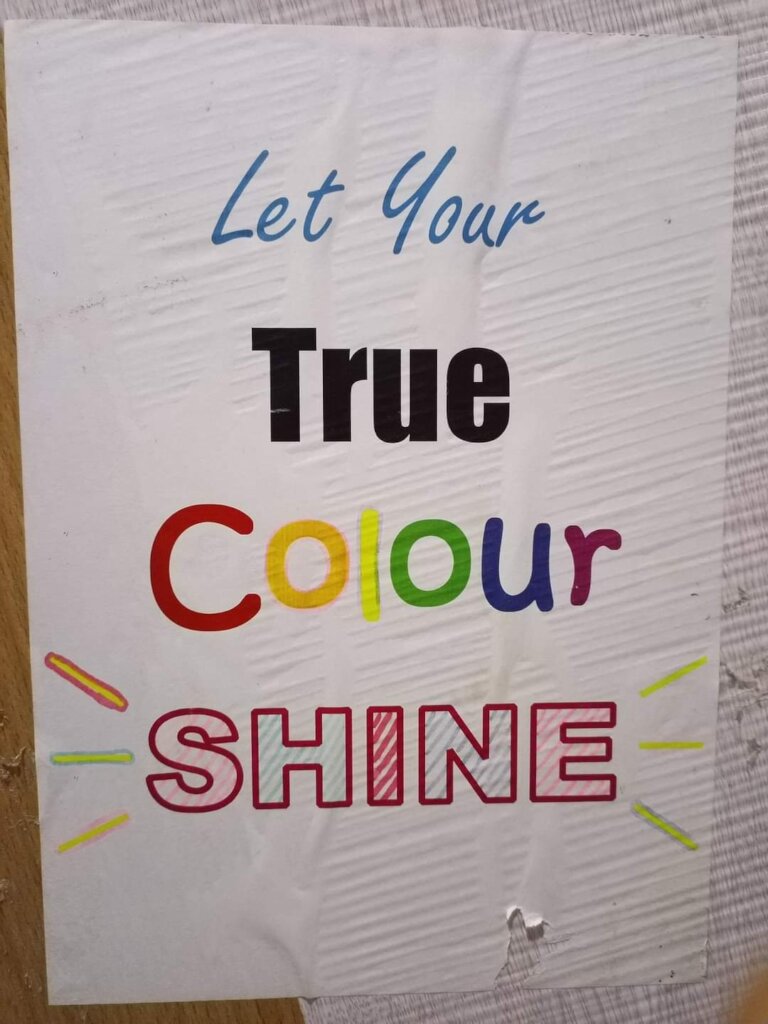 Let Your
True
Colour
SHINE